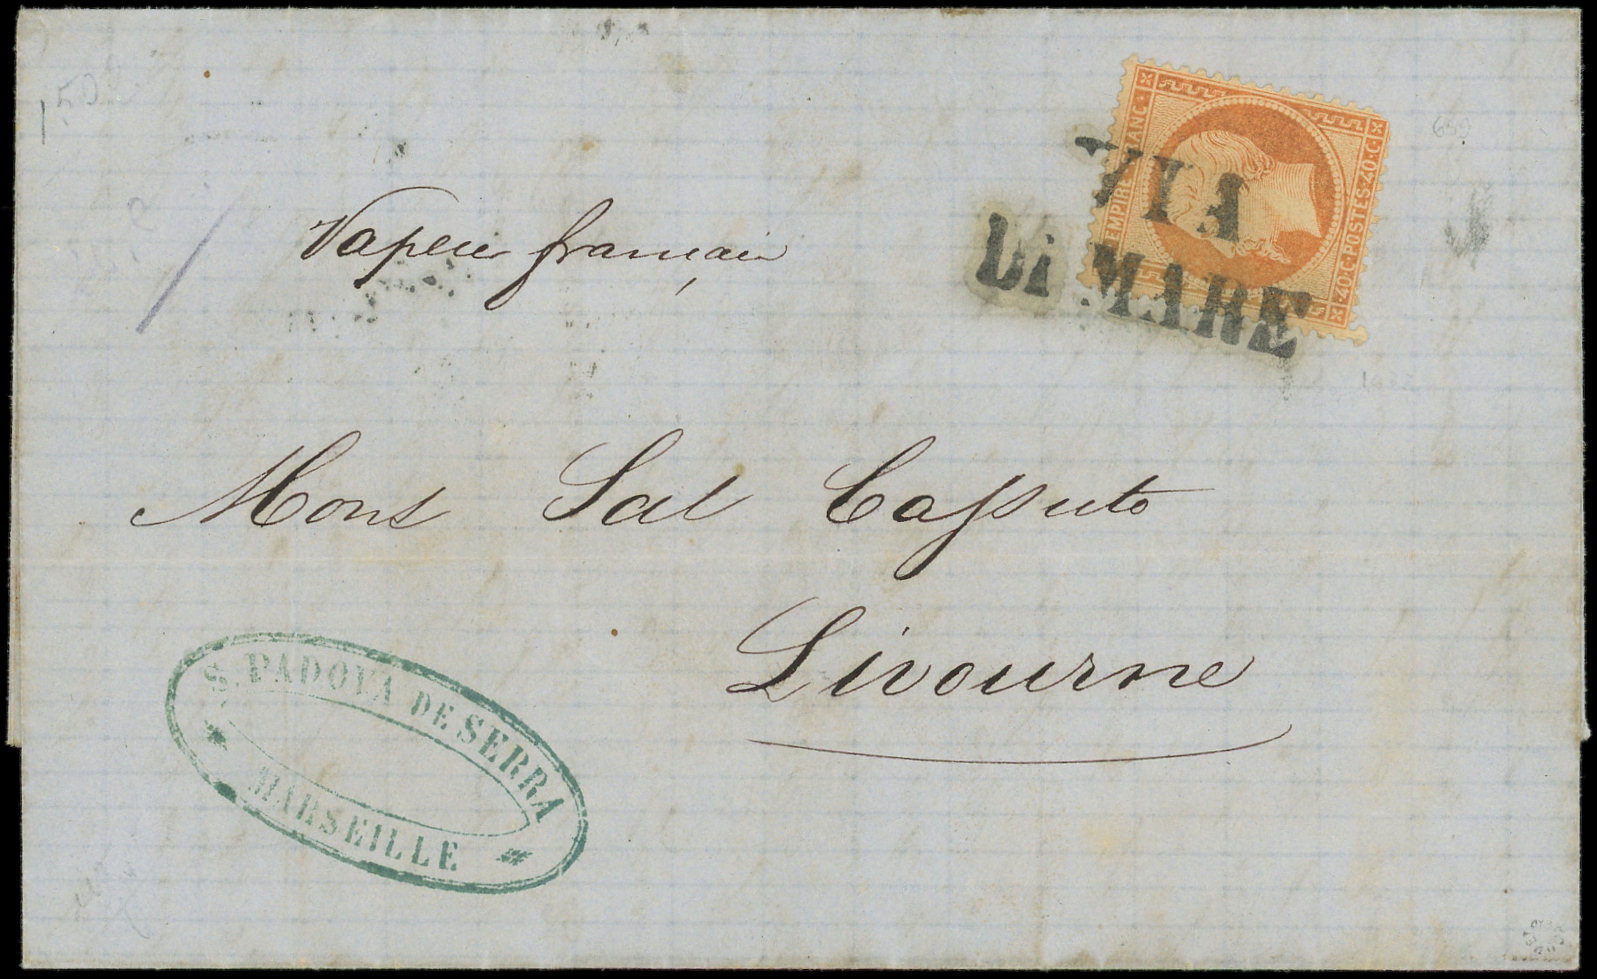 EMPIRE FRANC.
40.C.POSTES.40.C.
VIA
Di MARE
Vapeur français
Mons Sal Cassuto
Livourne
S. PADOVA DE SERRA
MARSEILLE